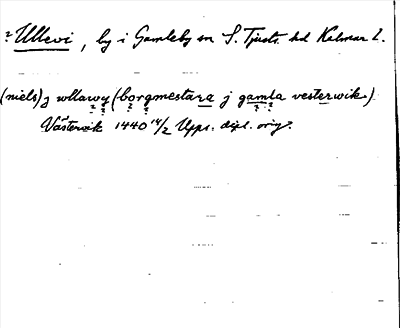 ? Ullevi, by i Gamleby sn S. Tjust. hd Kalmar l.
(niels) j wllawy (borgmestara j gamla vesterwik)
Västervik 1440 14/2 Upps. dipl. orig.